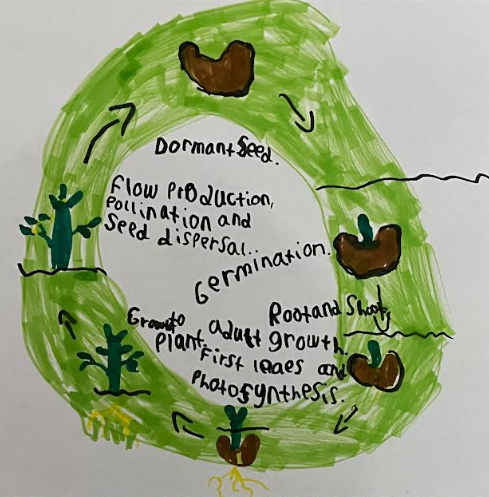 Dormant Seed.
Flow Production,
Pollination and
Seed dispersal..
Germination.
Root and Shoots
Growto adult growth.
Plant. First leaes and
Photosynthesis.